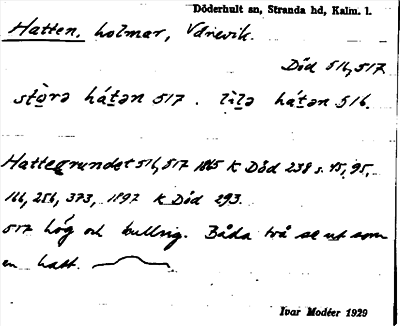 Döderhult sn, Stranda hd, Kalm. l.
Hatten, holmar, Vånevik.
Död 516, 517
stòrə hátən 517 . lìlə hátən 516.
Hattegrundet 516, 517 1865 K Död 238 s. 45, 95,
166, 256, 373, 1897 K Död 293.
517 hög och kullrig. Båda två se ut som
en hatt.
Ivar Modéer 1929